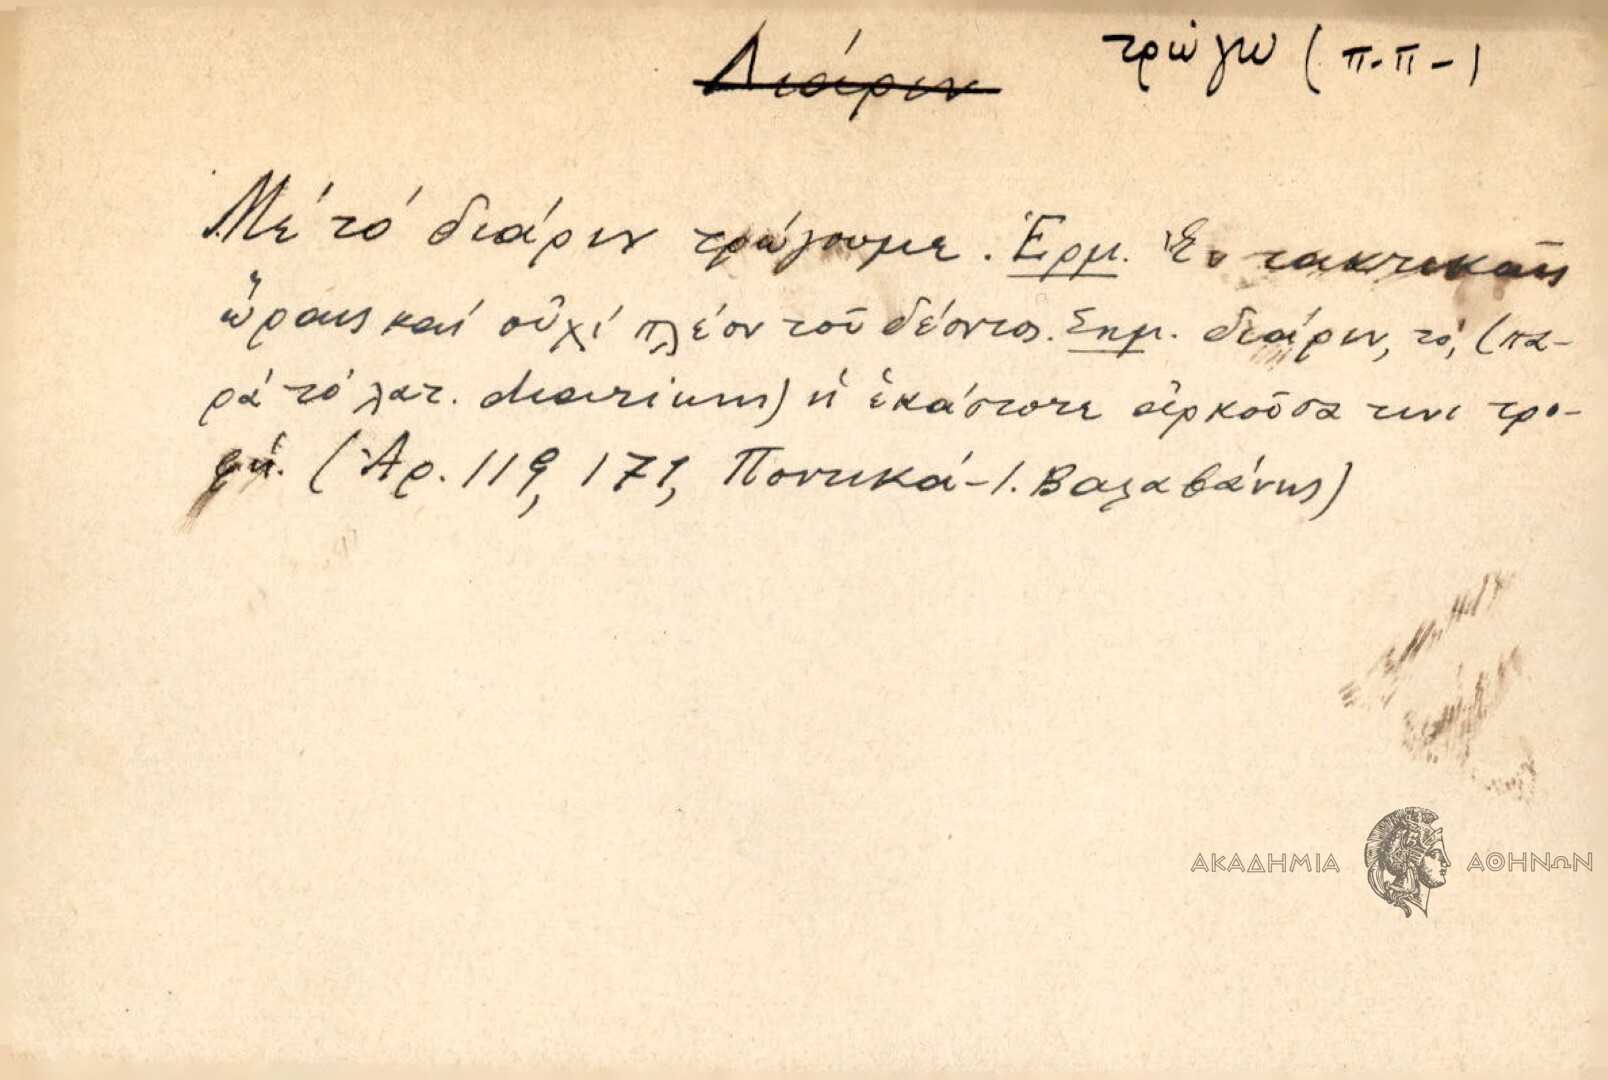 Διάριν τρώγω (π-π-)
Μέ τό διάριν τρώγουμε. Ἑρμ. Ἐν τακτικαῖς
ὥραις καί οὐχί πλέον τοῦ δέοντος. Σημ. διάριν, τό, (πα-
ρά τό λατ. diarium) ἡ ἑκάστοτε ἀρκοῦσα τινι τρο-
φή. (Ἀρ. 119, 171, Ποντικά - Ι. Βαλαβάνης)
ΑΚΑΔΗΜΙΑ ΑΘΗΝΩΝ